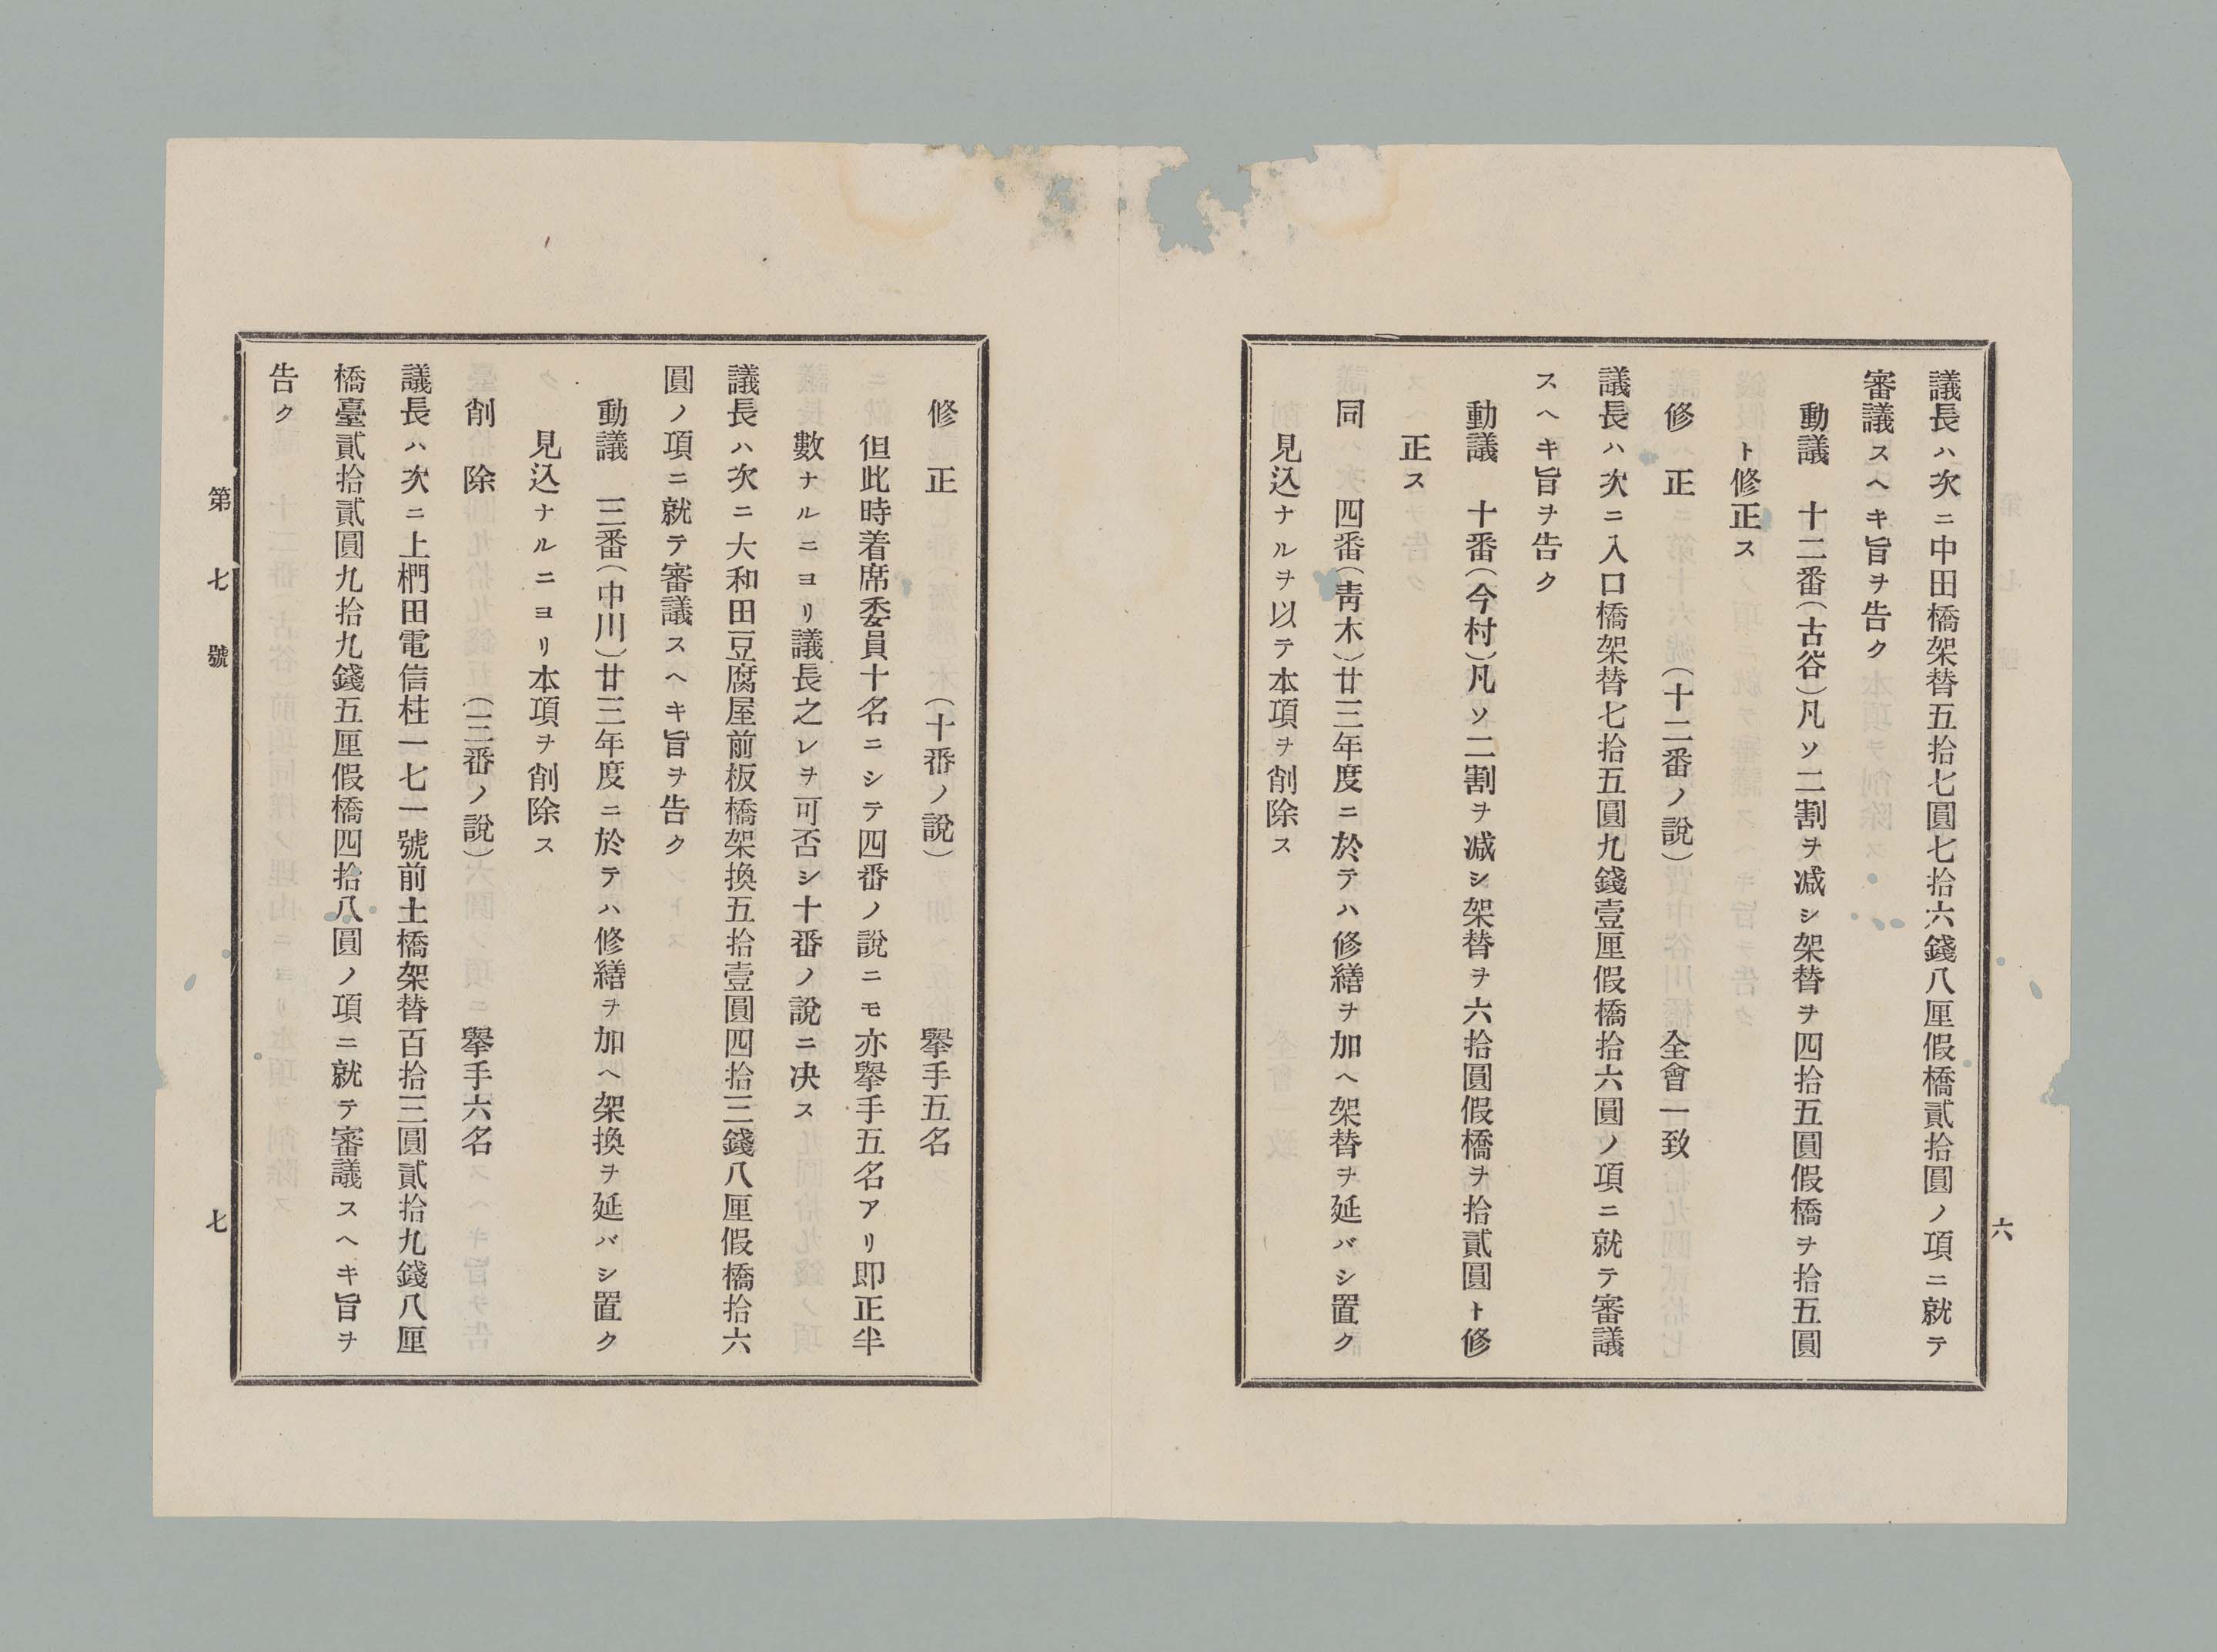 議長ハ次ニ中田橋架替五拾七圓七拾六錢八厘假橋貳拾圓ノ項ニ就テ
審議スヘキ旨ヲ告ク
動議　十二番(古谷)凡ソ二割ヲ减シ架替ヲ四拾五圓假橋ヲ拾五圓
ト修正ス
修　正　　　　　(十二番ノ說)　　　　　全會一致
議長ハ次ニ入口橋架替七拾五圓九錢壹厘假橋拾六圓ノ項ニ就テ審議
スヘキ旨ヲ告ク
動議　十番(今村)凡ソ二割ヲ减シ架替ヲ六拾圓假橋ヲ拾貳圓ト修
正ス
同　　四番(靑木)廿三年度ニ於テハ修繕ヲ加ヘ架替ヲ延バシ置ク
見込ナルヲ以テ本項ヲ削除ス
六
修　正　　　　　　(十番ノ說)　　　　　擧手五名
但此時着席委員十名ニシテ四番ノ說ニモ亦擧手五名アリ即正半
數ナルニヨリ議長之レヲ可否シ十番ノ說ニ决ス
議長ハ次ニ大和田豆腐屋前板橋架換五拾壹圓四拾三錢八厘假橋拾六
圓ノ項ニ就テ審議スヘキ旨ヲ告ク
動議　三番(中川)廿三年度ニ於テハ修繕ヲ加ヘ架換ヲ延バシ置ク
見込ナルニヨリ本項ヲ削除ス
削　除　　　　　　(三番ノ說)　　　　　擧手六名
議長ハ次ニ上椚田電信柱一七一號前土橋架替百拾三圓貳拾九錢八厘
橋臺貳拾貳圓九拾九錢五厘假橋四拾八圓ノ項ニ就テ審議スヘキ旨ヲ
告ク
第七號
七